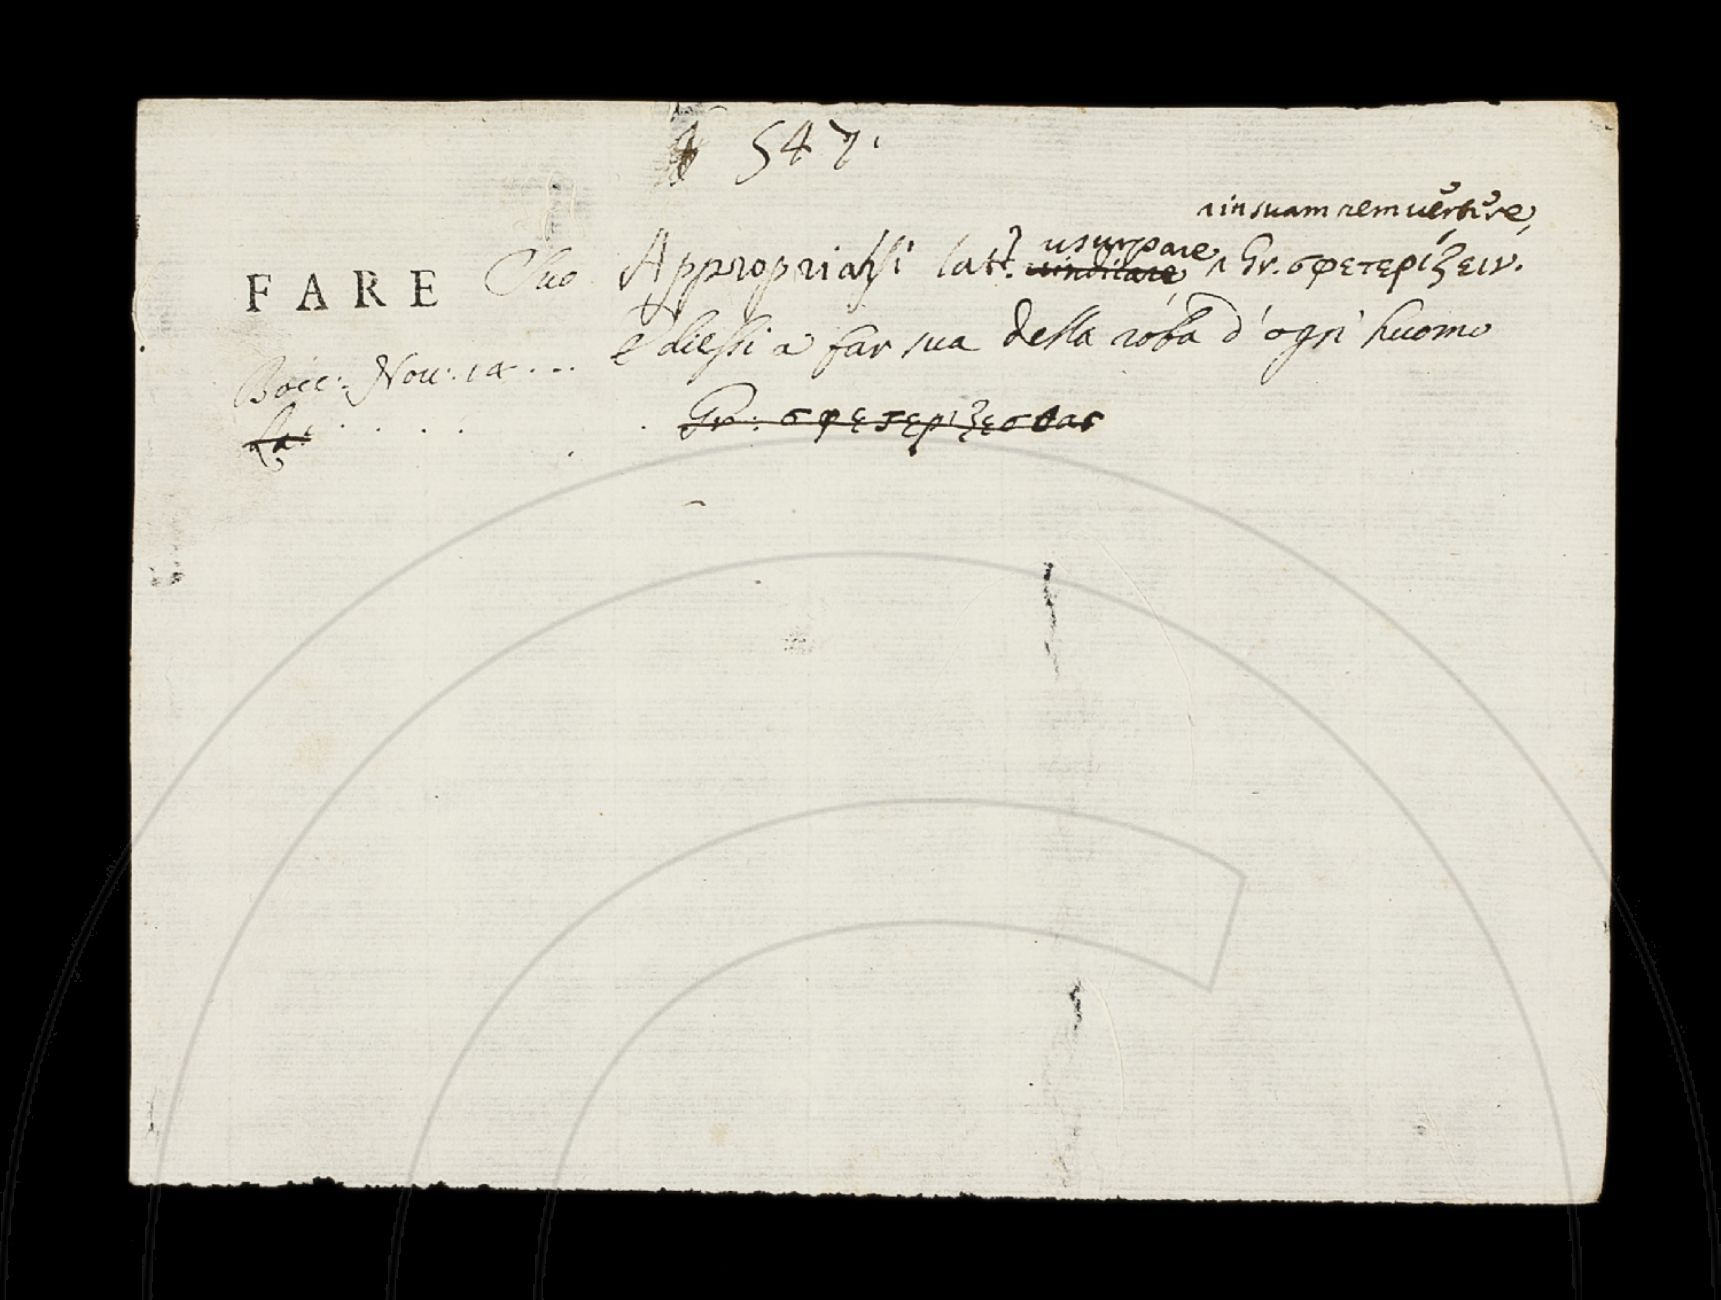 547.
in suam rem vertere,
usurpare
FARE Suo Appropriarsi latt. vindicare Gr. σφετερίζειν.
e diessi a far sua della roba d'ogni huomo
Bocc: Nov: 14 ...
La: . . . . . Gr: σφετερίζεσθαι